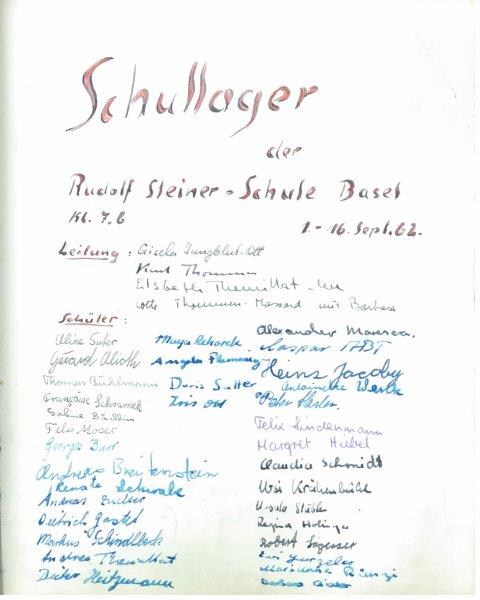 Schullager
der
Rudolf Steiner-Schule Basel
Kl. 7.b
1.-16. Sept. 62.
Leitung: Gisela Jungblut-Ott
Kurt Thommen
Elsbeth
Lotte Thommen-Massard mit Barbara
Schüler:
Aline Suter
Gérard Alioth
Thomas Bühlmann
Françoise
Sabine
Felix Moser
Georges
Andreas Breitenstein
Renate Schwabe
Andreas
Dietrich
Markus Schindlbeck
Andrea
Dieter Heitzmann
Maya Rehorek
Angela
Doris Sutter
Iris Ott
Alexander
Caspar ABT
Heinz Jacoby
Antoinette Wenk
Peter
Felix Lindenmann
Margret Hiebel
Claudia Schmidt
Ursi Krähenbühl
Ursula
Regina
Robert
Marianne
Barbara